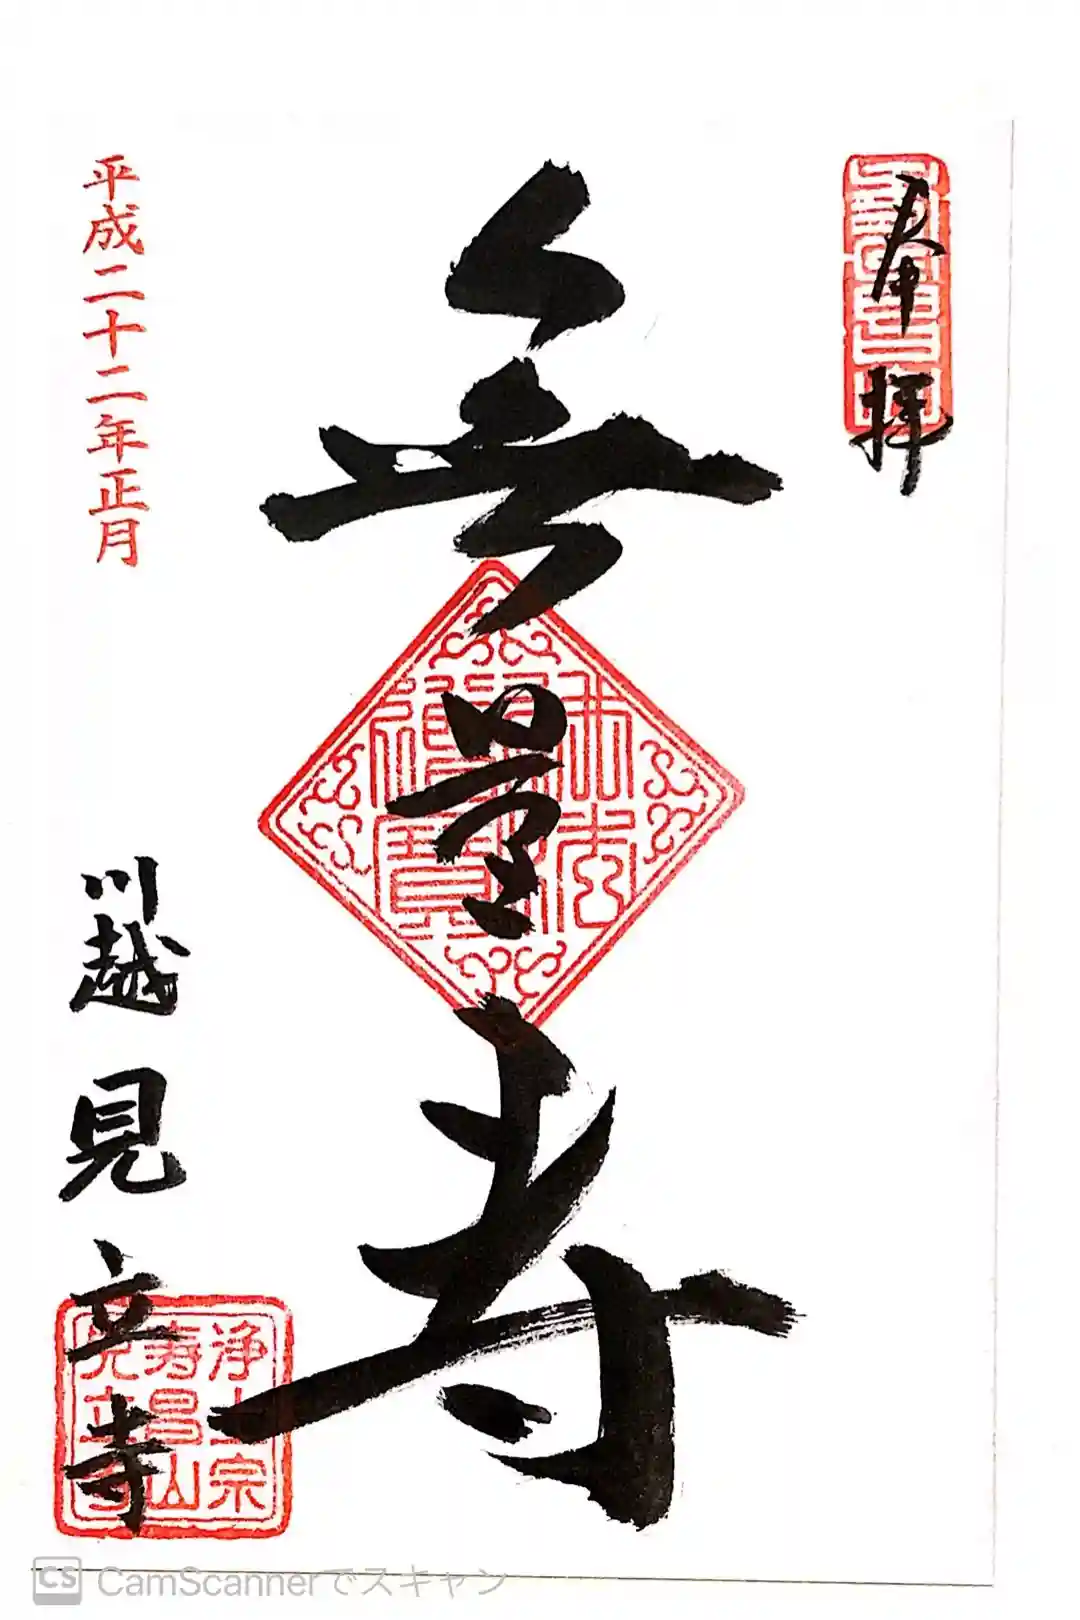 奉拝
無量寿
平成二十二年正月
川越 見立寺
仏法僧寳
浄土宗
寿昌山
見立寺
CamScannerでスキャン